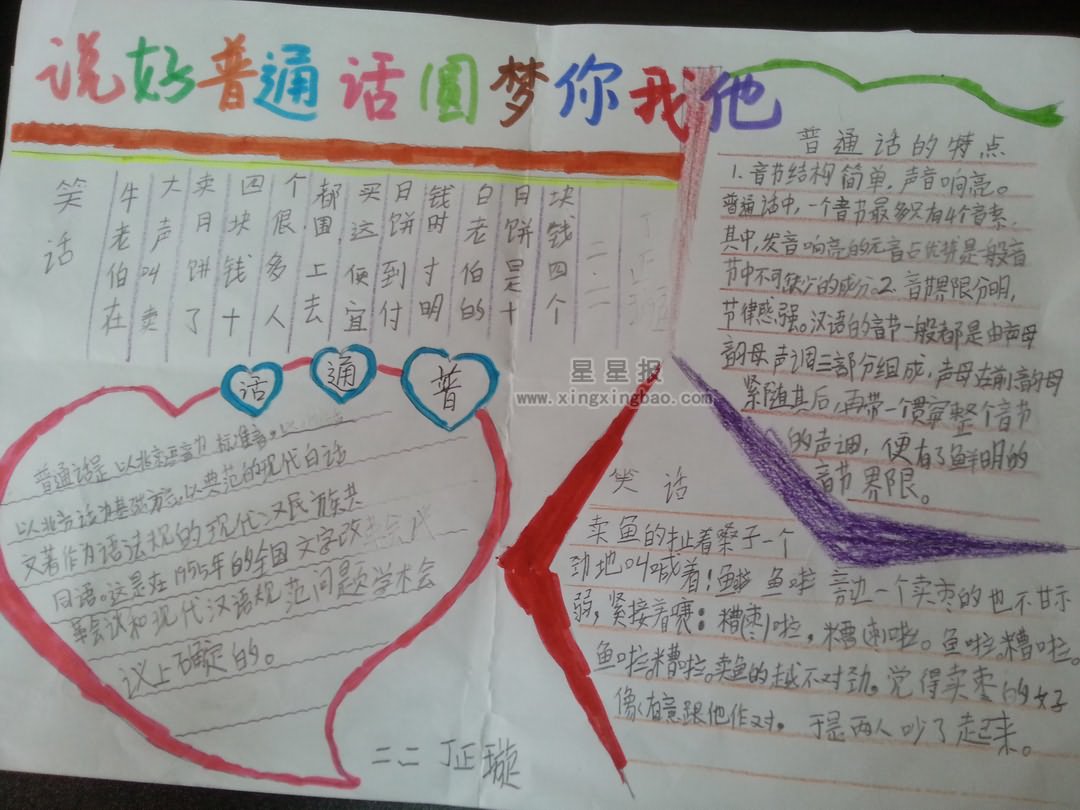 说好普通话圆梦你我他
笑话
牛老伯在
大声叫卖
卖月饼了
四块钱十
个很多人
都围上去
买这便宜
月饼到付
钱时才明
白老伯的
月饼是十
块钱四个
二.二
丁正璇
普通话的特点
1.音节结构简单,声音响亮。
普通话中,一个音节最多只有4个音素,
其中,发音响亮的元音占优势是一般音
节中不可缺少的成分。2.音节界限分明,
节律感强。汉语的音节一般都是由声母
韵母声调三部分组成,声母在前韵母
紧随其后,再带一个贯穿整个音节
的声调,便有了鲜明的
音节界限。
普通话
普通话是以北京语音为标准音。
以北方话为基础方言。以典范的现代白话
文著作为语法规的现代汉民族共
同语。这是在1955年的全国文字改
革会议和现代汉语规范问题学术会
议上确定的。
二二 丁正璇
笑话
卖鱼的扯着嗓子一个
劲地叫喊着!鱼啦 鱼啦 旁边一个卖枣的也不甘示
弱,紧接着喊:糟(枣)啦,糟(枣)啦。鱼啦。糟啦。
鱼啦。糟啦。卖鱼的越不对劲,觉得卖枣的好
像有意跟他作对。于是两人吵了起来。
星星报
www.xingxingbao.com